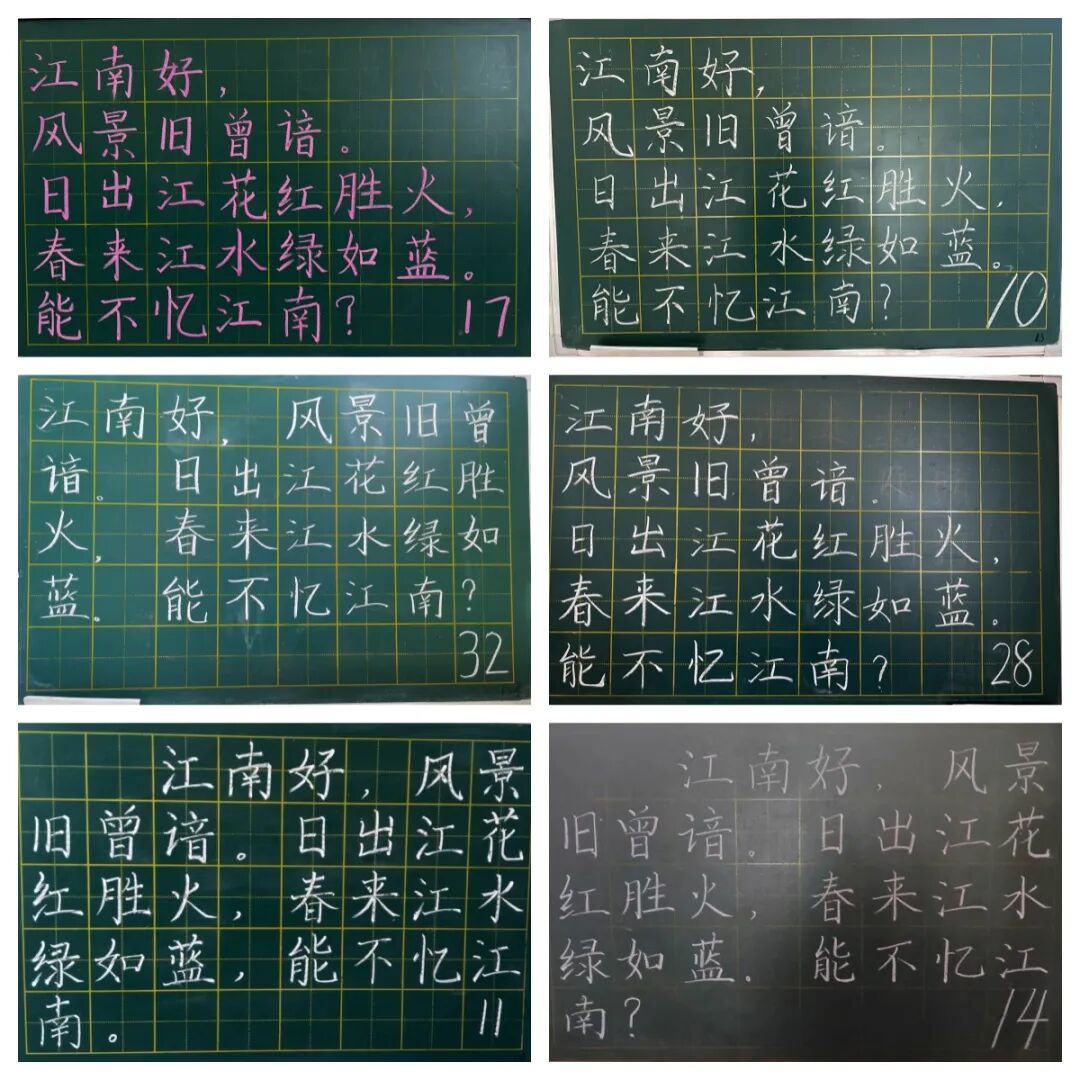 江南好，
风景旧曾谙。
日出江花红胜火，
春来江水绿如蓝。
能不忆江南？ 17
江南好，
风景旧曾谙。
日出江花红胜火，
春来江水绿如蓝。
能不忆江南？ 10
江南好，风景旧曾
谙。日出江花红胜
火，春来江水绿如
蓝。能不忆江南？
32
江南好，
风景旧曾谙。
日出江花红胜火，
春来江水绿如蓝。
能不忆江南？ 28
江南好，风景
旧曾谙。日出江花
红胜火，春来江水
绿如蓝，能不忆江
南。 11
江南好，风景
旧曾谙。日出江花
红胜火，春来江水
绿如蓝.能不忆江
南？ 14